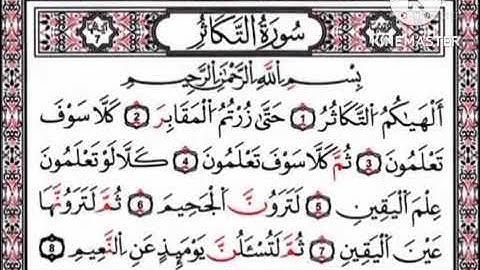 سُورَةُ التَّكَاثُرِ
KINEMASTER
بِسْمِ اللَّهِ الرَّحْمَٰنِ الرَّحِيمِ
أَلْهَىٰكُمُ التَّكَاثُرُ ١ حَتَّىٰ زُرْتُمُ الْمَقَابِرَ ٢ كَلَّا سَوْفَ
تَعْلَمُونَ ٣ ثُمَّ كَلَّا سَوْفَ تَعْلَمُونَ ٤ كَلَّا لَوْ تَعْلَمُونَ
عِلْمَ الْيَقِينِ ٥ لَتَرَوُنَّ الْجَحِيمَ ٦ ثُمَّ لَتَرَوُنَّهَا
عَيْنَ الْيَقِينِ ٧ ثُمَّ لَتُسْأَلُنَّ يَوْمَئِذٍ عَنِ النَّعِيمِ ٨